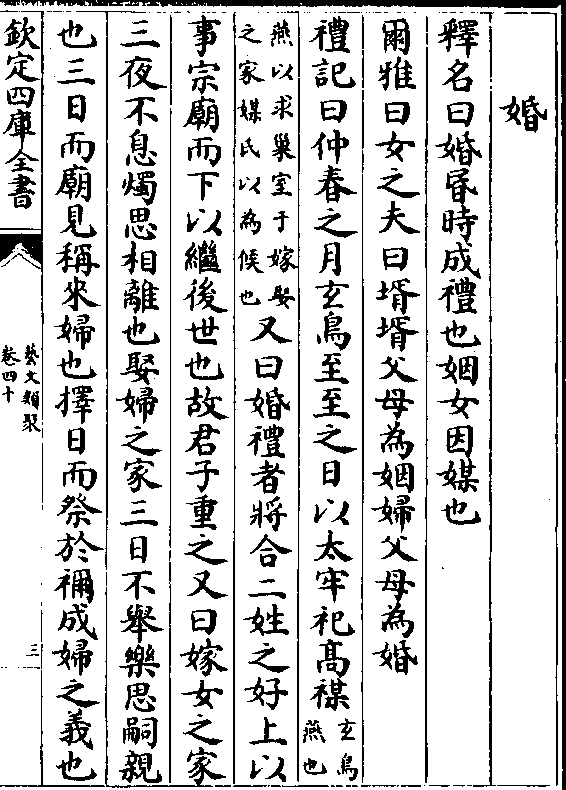 婚
釋名曰婚昏時成禮也姻女因媒也
爾雅曰女之夫曰壻壻父母為姻婦父母為婚
禮記曰仲春之月玄鳥至至之日以太牢祀髙禖玄鳥燕也
燕以求巢室于嫁娶之家媒氏以為候也又曰婚禮者將合二姓之好上以
事宗廟而下以繼後世也故君子重之又曰嫁女之家
三夜不息燭思相離也娶婦之家三日不舉樂思嗣親
也三日而廟見稱來婦也擇日而祭於禰成婦之義也
欽定四庫全書
藝文類聚
卷四十
三